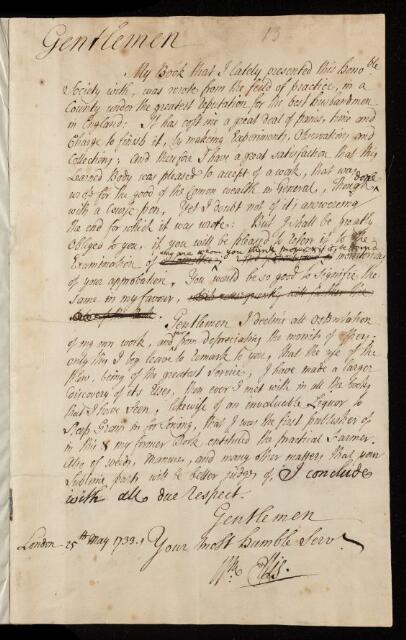 13
Gentlemen
My Book that I lately presented this Hono.ble
Society with, was wrote from the feild of practice, in a
County under the greatest reputation for the best husbandmen
in England: It has cost me a great deal of pains, time and
Charge to finish it, by making Experiments, Observations, and
Collections; And therefore I have a great satisfaction that this
Learned Body was pleased to accept of a work, that was done
for the good of the Comon wealth in General, though
with a Coarse pen, Yet I doubt not of its answering
the end for which it was wrote: But I shall be greatly
Obliged to you, if you will be pleased to referr it to the
Examination of
of your approbation, You would be so good to signifie the
same in my favour,
Gentlemen I decline all ostentation
of my own work, and from depreciating the merits of others:
only this I beg leave to remark to you, that the use of the
Plow, being of the greatest service, I have made a larger
discovery of its Uses, than ever I met with in all the books
that I have seen, likewise of an invaluable Liquor to
Steep Grain in for Sowing, that I was the first publisher of
in this & my former Book entituled the Practical Farmer.
Also of weeds, manures, and many other matters that your
Sublime parts will be better judges of, I conclude
with all due respect.
Gentlemen
London 25th May 1733. Your most humble Serv.t
Wm Ellis.